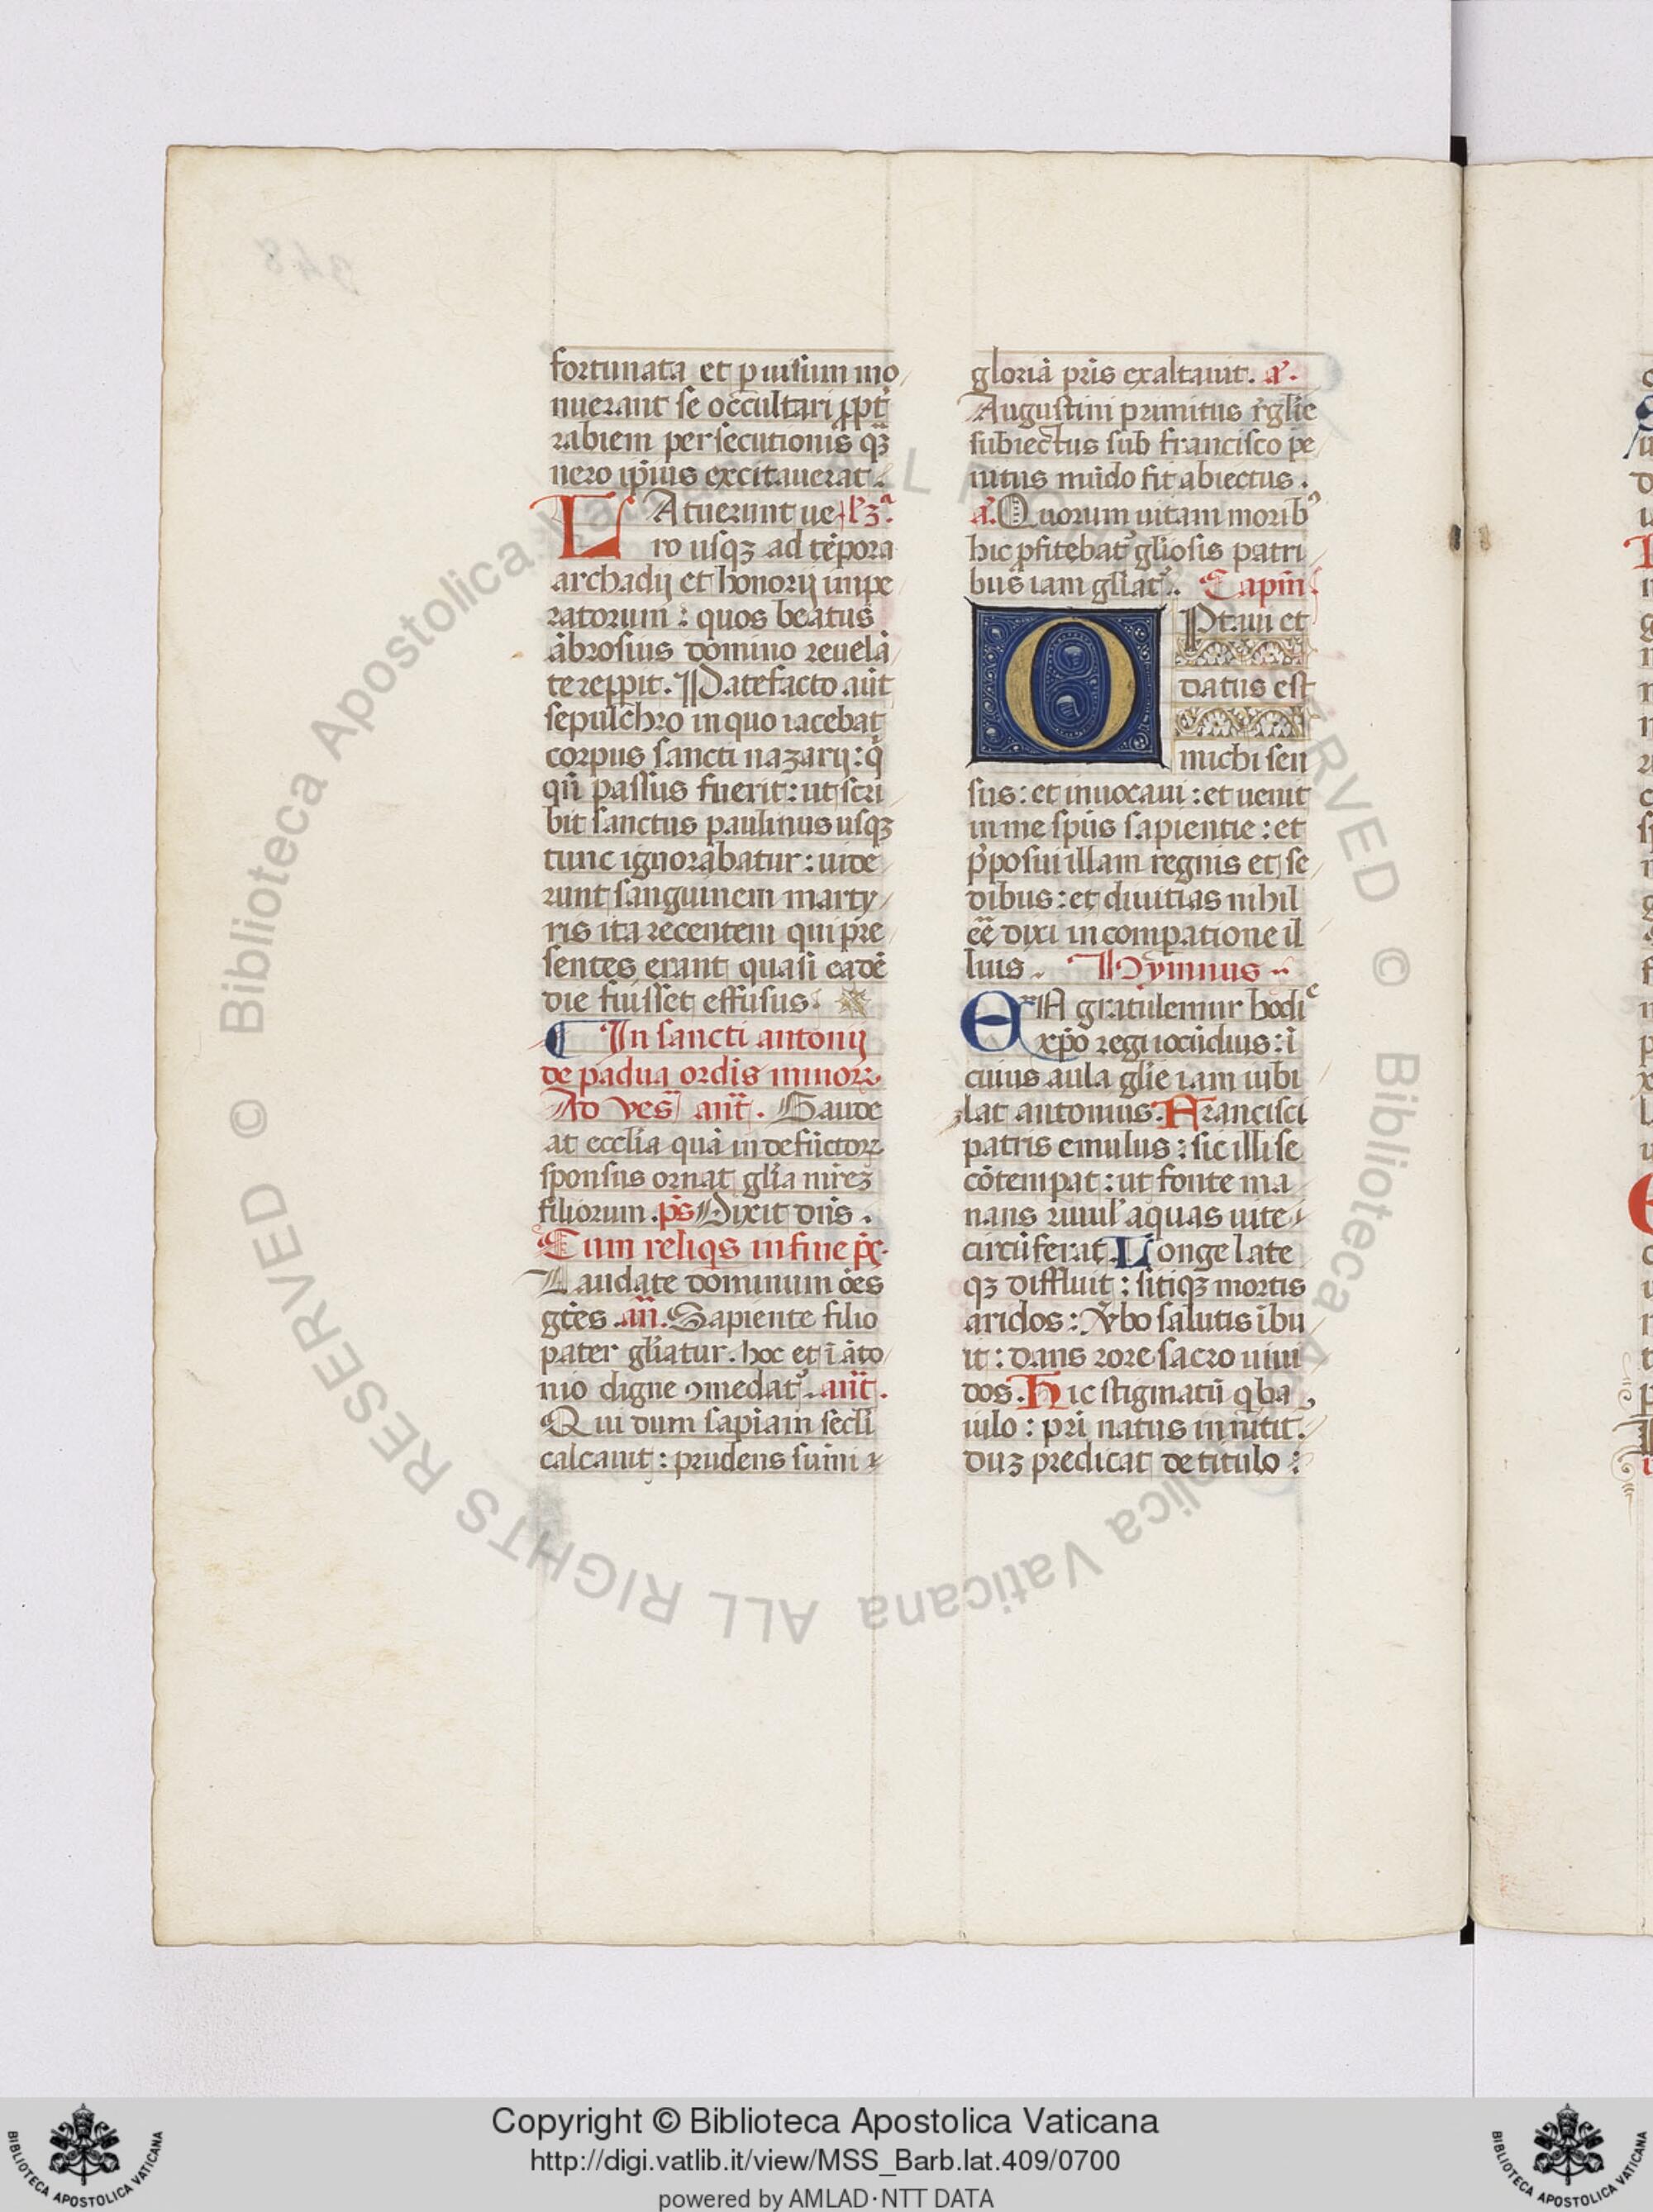 fortunata et p uisium mo
nuerant se occultari ꝓpt̾
rabiem persecutionis qz̄
nero ip̄ius excitauerat.
LAtuerunt ue l'z.ᵃ
ro usqz ad tēpora
archadij et honorij impe
ratorum: quos beatus
ābrosius domino reuelā
te reppit. Patefacto aūt
sepulchro in quo iacebat
corpus sancti nazarij: q̄
qn̄ passus fuerit: ut scri
bit sanctus paulinus usqz
tunc ignorabatur: uide
runt sanguinem marty
ris ita recentem qui pre
sentes erant quasi eadē
die fuisset effusus.
¶ In sancti antonij
de padua ordīs minoꝝ.
Ad ves̄ añt. Gaude
at eccl̄ia quā in defūctoꝝ
sponsus ornat gl̄ia mr̄ez
filiorum. ps̄ Dixit dn̄s.
Cum reliqs in fine ps̄.
Laudate dominum oēs
gētes. añ. Sapiente filio
pater gl̄iatur. hoc et ī āto
nio digne ꝯmēdat᷒. añt.
Qui dum sapīam sec̄li
calcauit: prudens sūmi
gloriā pr̄is exaltauit. a᷒.
Augustini primitus r̄gl̄ie
subiectus sub francisco pe
nitus mūdo fit abiectus.
a᷒. Quorum uitam morib᷒
hic ꝓfitebat᷒ gl̄iosis patri
bus iam gl̄iat᷒. Capim̄
OPtaui et
datus est
michi sen
sus: et inuocaui: et uenit
in me sp̄us sapientie: et
p̄posui illam regnis et se
dibus: et diuitias nihil
eē̄ dixi in compatione il
lius. Hymnus
EN gratulemur hodie
xp̄o regi iocūdius: ī
cuius aula gl̄ie iam iubi
lat antonius. Francisci
patris emulus: sic illi se
cōtempat: ut fonte ma
nans riuul᷒ aquas uite
circūferat. Longe late
qz diffluit: sitiqz mortis
aridos: v̾bo salutis ību
it: dans rore sacro uiui
dos. Hic stigmatū q ba
iulo: pr̄i natus innitit.
duz predicat de titulo:
Copyright © Biblioteca Apostolica Vaticana
http://digi.vatlib.it/view/MSS_Barb.lat.409/0700
powered by AMLAD·NTT DATA
BIBLIOTECA APOSTOLICA VATICANA
BIBLIOTECA APOSTOLICA VATICANA
© Biblioteca Apostolica Vaticana ALL RIGHTS RESERVED © Biblioteca Apostolica Vaticana ALL RIGHTS RESERVED